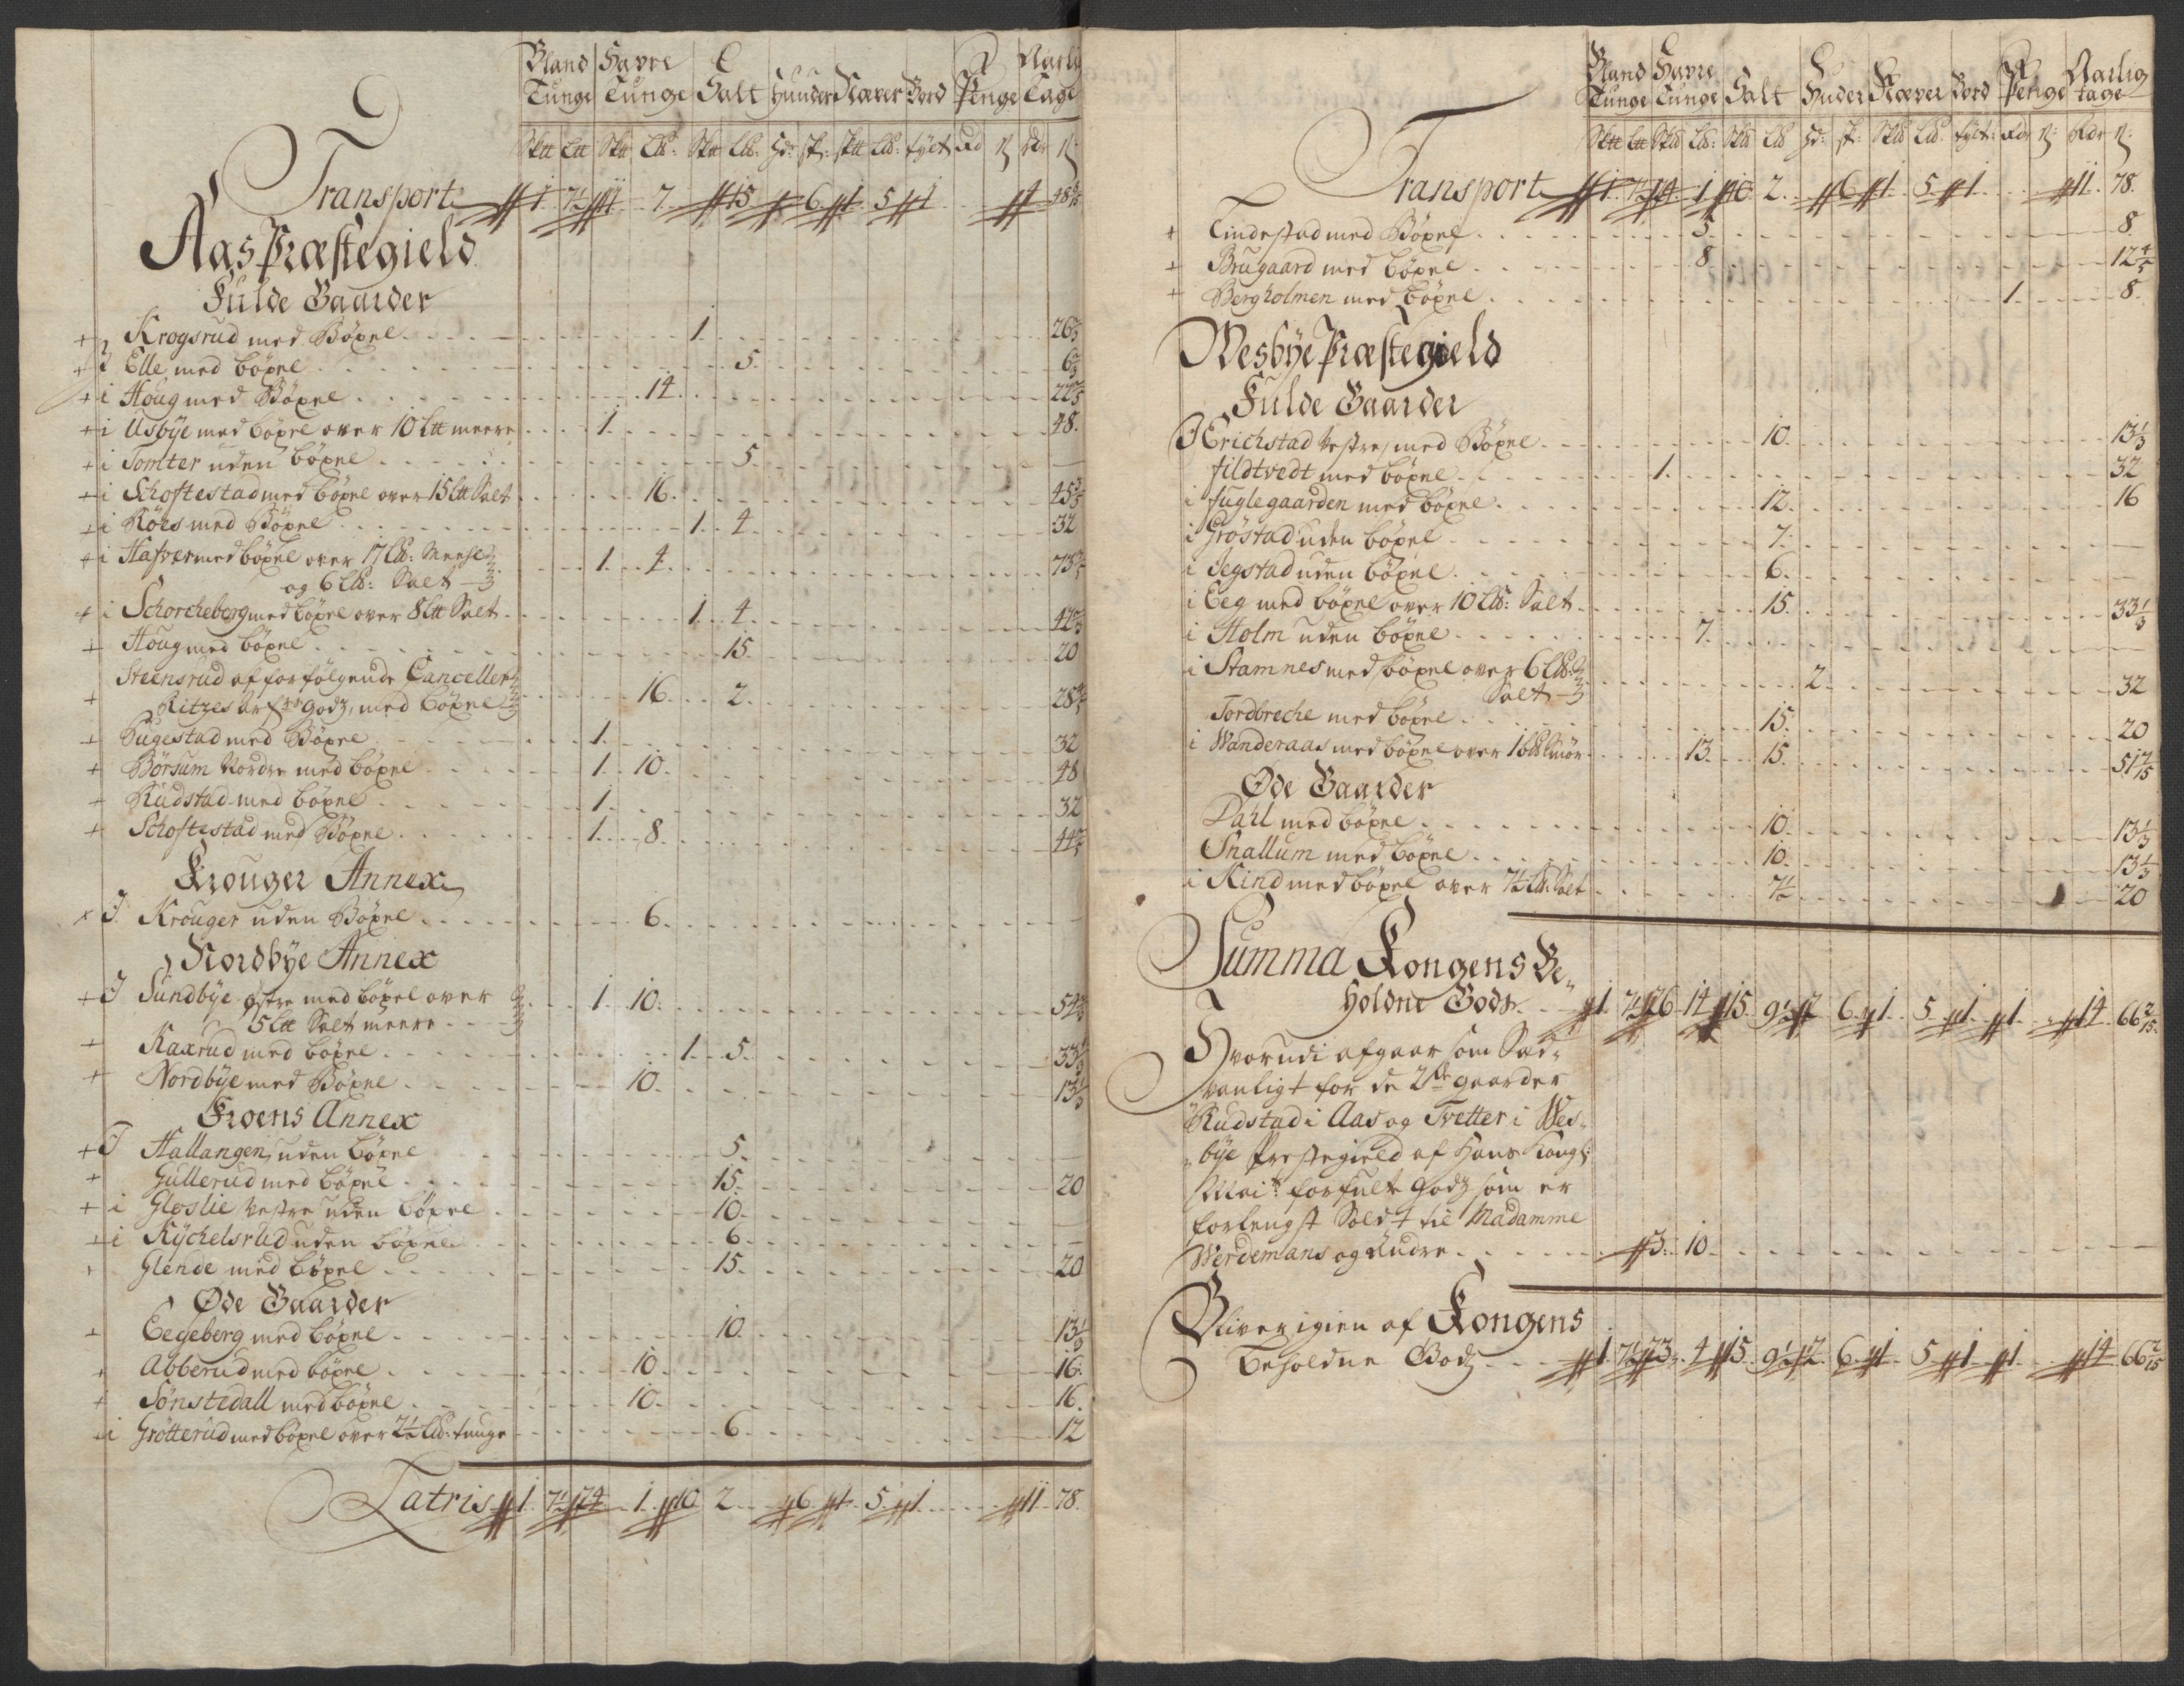 Bland Tunge Havre Tunge Salt Huuder Næver Bord Penge Aarlig Tage
Sktt Ltt Sktt L℔: Sktt L℔: Hd: sk: sktt L℔: tylt Rd ꝶ rdr ꝶ
Transport 1 7½ 11 7 15 6 1 5 1 4 48
Aas Præstegield
Fulde Gaarder
Krogsrud med Böxel 1 26⅔
I Elle med böxel 5 6⅔
i Houg med Böxel 14 22⅖
i Usbÿe med böxel over 10 Ltt meere 1 48
i Tomter uden böxel 5
i Schoftestad med böxel over 15 Ltt Salt 16 45⅗
i Röes med Böxel 1 4 32
i Hafver med böxel over 17 L℔: 1 4 73⅗
og 6 L℔: Salt
i Schorcheberg med böxel over 8 Ltt Salt 1 4 42⅔
Houg med böxel 15 20
Steensrud af forfölgende Canceller
Ritzes Godz, med böxel 16 2 28
Hugestad med Böxel 1 32
Börsum Nordre med böxel 1 10 48
Rudstad med böxel 1 32
Schoftestad med Böxel 1 8 44
Krouger Annex
I Krouger uden Böxel 6
Nordbÿe Annex
I Sundbÿe östre med böxel over 1 10 54⅔
5 Ltt Salt meere
Kaxrud med böxel 1 5 33⅓
Nordbÿe med Böxel 10 13⅓
Froens Annex
I Hallangen uden böxel 5
Gullerud med böxel 15 20
i Gloslie Vestre uden böxel 10
i Kÿchelsrud uden böxel 6
Glende med böxel 15 20
Øde Gaarder
Eegeberg med böxel 10 13⅓
Abberud med böxel 10 16
Sönstedall med böxel 10 16
i Grötterud med böxel over 2½ L℔: tunge 6 12
Latris 1 7½ 24 1 10 2 6 1 5 1 11 78
Bland Tunge Havre Tunge Salt Huder Næver Bord Penge Aarlig tage
Sktt Ltt Sk℔ L℔: Sk℔ L℔ Hd: sk: Sk℔ L℔: tylt: Rdr ꝶ: Rdr ꝶ:
Transport 1 7½ 24 1 10 2 6 1 5 1 11 78
Lindestad med Böxel 5 8
Brugaard med böxel 8 12⅘
Bergholmen med böxel 1 8
Wesbÿe Præstegield
Fulde Gaarder
I Erichstad Vestre med Böxel 10 13⅓
fildtvedt med böxel 1 32
i fuglegaarden med böxel 12 16
i Gröstad uden böxel 7
i Jegstad uden böxel 6
i Eeg med böxel over 10 L℔: Salt 15 33⅓
i Holm uden böxel 7
i Stamnes med böxel over 6 L℔: 2 32
Salt
Tordbreche med böxel 15 20
i Wanderaas med böxel over 1 b℔ Smör 13 15 51
Øde Gaarder
Dall med böxel 10 13⅓
Snallum med böxel 10 13⅓
i Kind med böxel over 7½ L℔: Salt 7½ 20
Summa Kongens Be=
holdne Gods 1 7½ 26 14 15 9½ 2 6 1 5 1 1 14 66 2/15
Hvorudi afgaar som Sæd=
vanligt for de 2de gaarder
Rudstad i Aas og Tvetter i Wes=
bÿe Prestegield af Hans Kongl:
Mait: forfulte Godz som er
forlengst Soldt til Madamme
Werdemans og Andre 3 10
Bliver igien af Kongens
Beholdne Godz 1 7½ 23 4 15 9½ 2 6 1 5 1 1 14 66 2/15